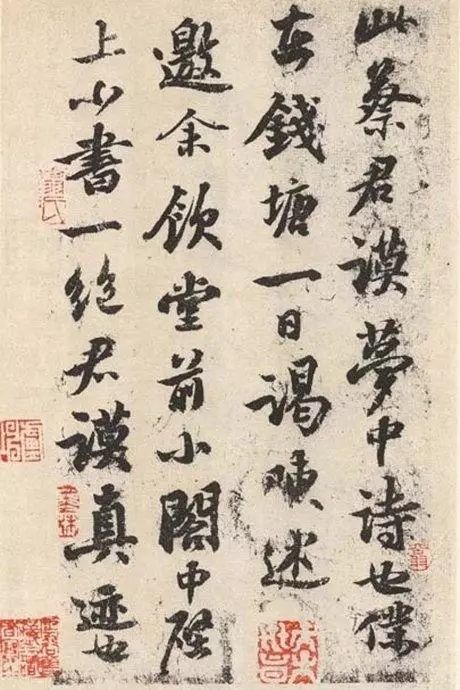 此蔡君謨夢中詩也僕
在錢塘一日謁陳述
邀余飲堂前小閣中壁
上小書一絕君謨真迹也